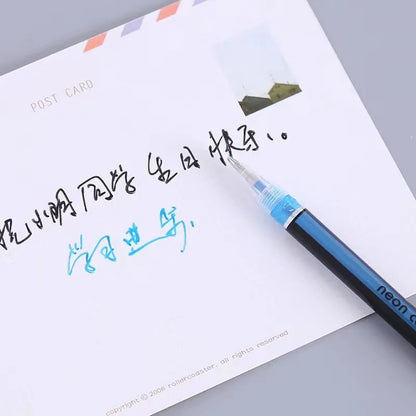 POST CARD
祝小明同学生日快乐..
学习进步.
neon c
copyright © 2006 rollercoaster. all rights reserved